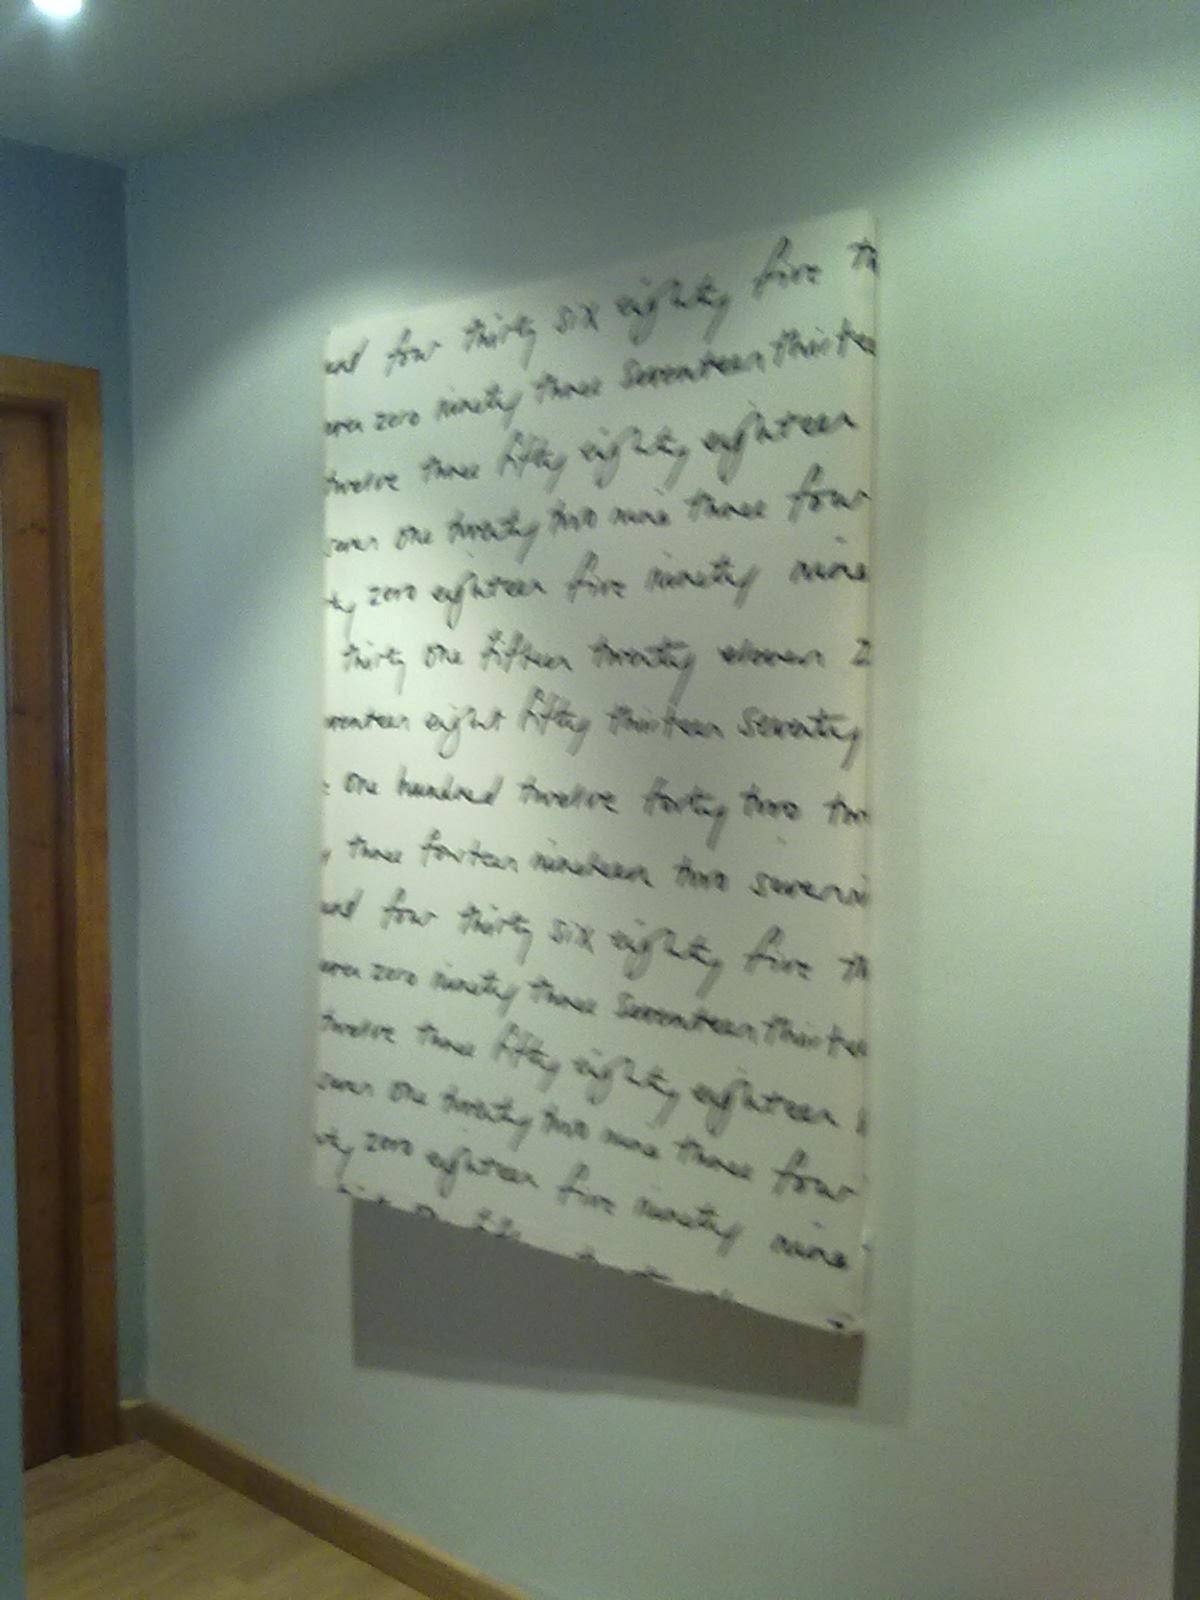 and four thirty six eighty five
zero ninety three seventeen thirtee
twelve three fifty eighty eighteen
seven one twenty two nine three four
ty zero eighteen five ninety nine
thirty one fifteen twenty eleven z
venteen eight fifty thirteen seventy
one hundred twelve forty two tw
y three forteen nineteen two seven
and four thirty six eighty five th
zero ninety three seventeen thirtee
twelve three fifty eighty eighteen
seven one twenty two nine three four
ty zero eighteen five ninety nine